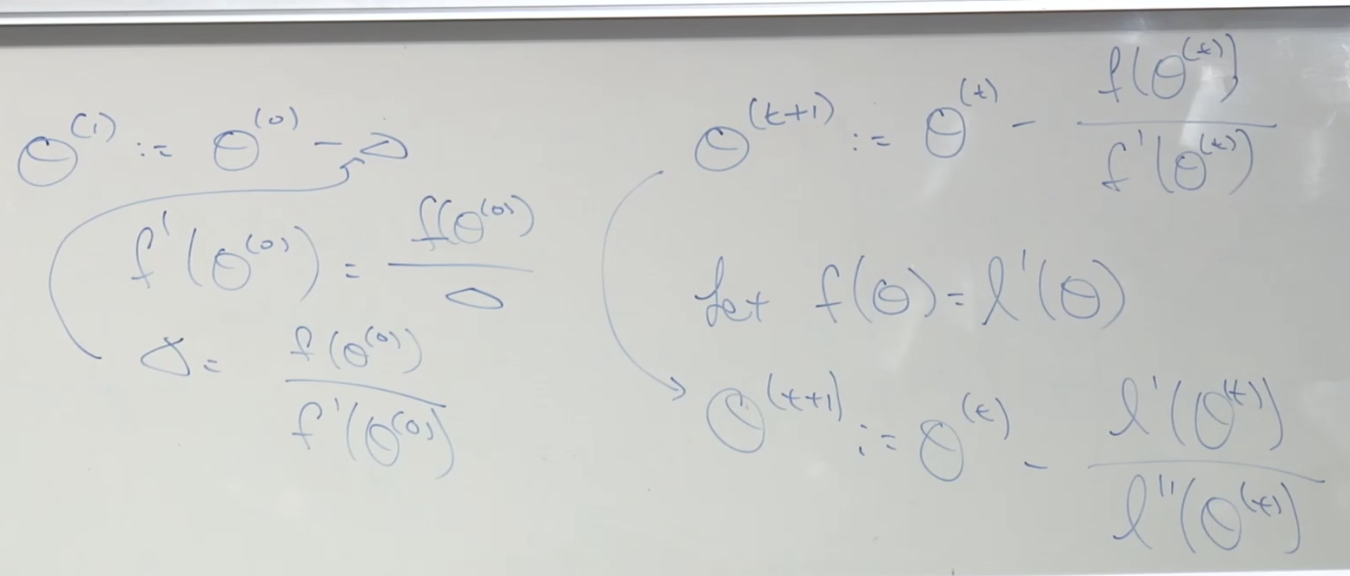 Θ^(1) := Θ^(0) − Δ
f'(Θ^(0)) = f(Θ^(0)) / Δ
Δ = f(Θ^(0)) / f'(Θ^(0))
Θ^(t+1) := Θ^(t) − f(Θ^(t)) / f'(Θ^(t))
Let f(Θ) = l'(Θ)
Θ^(t+1) := Θ^(t) − l'(Θ^(t)) / l''(Θ^(t))